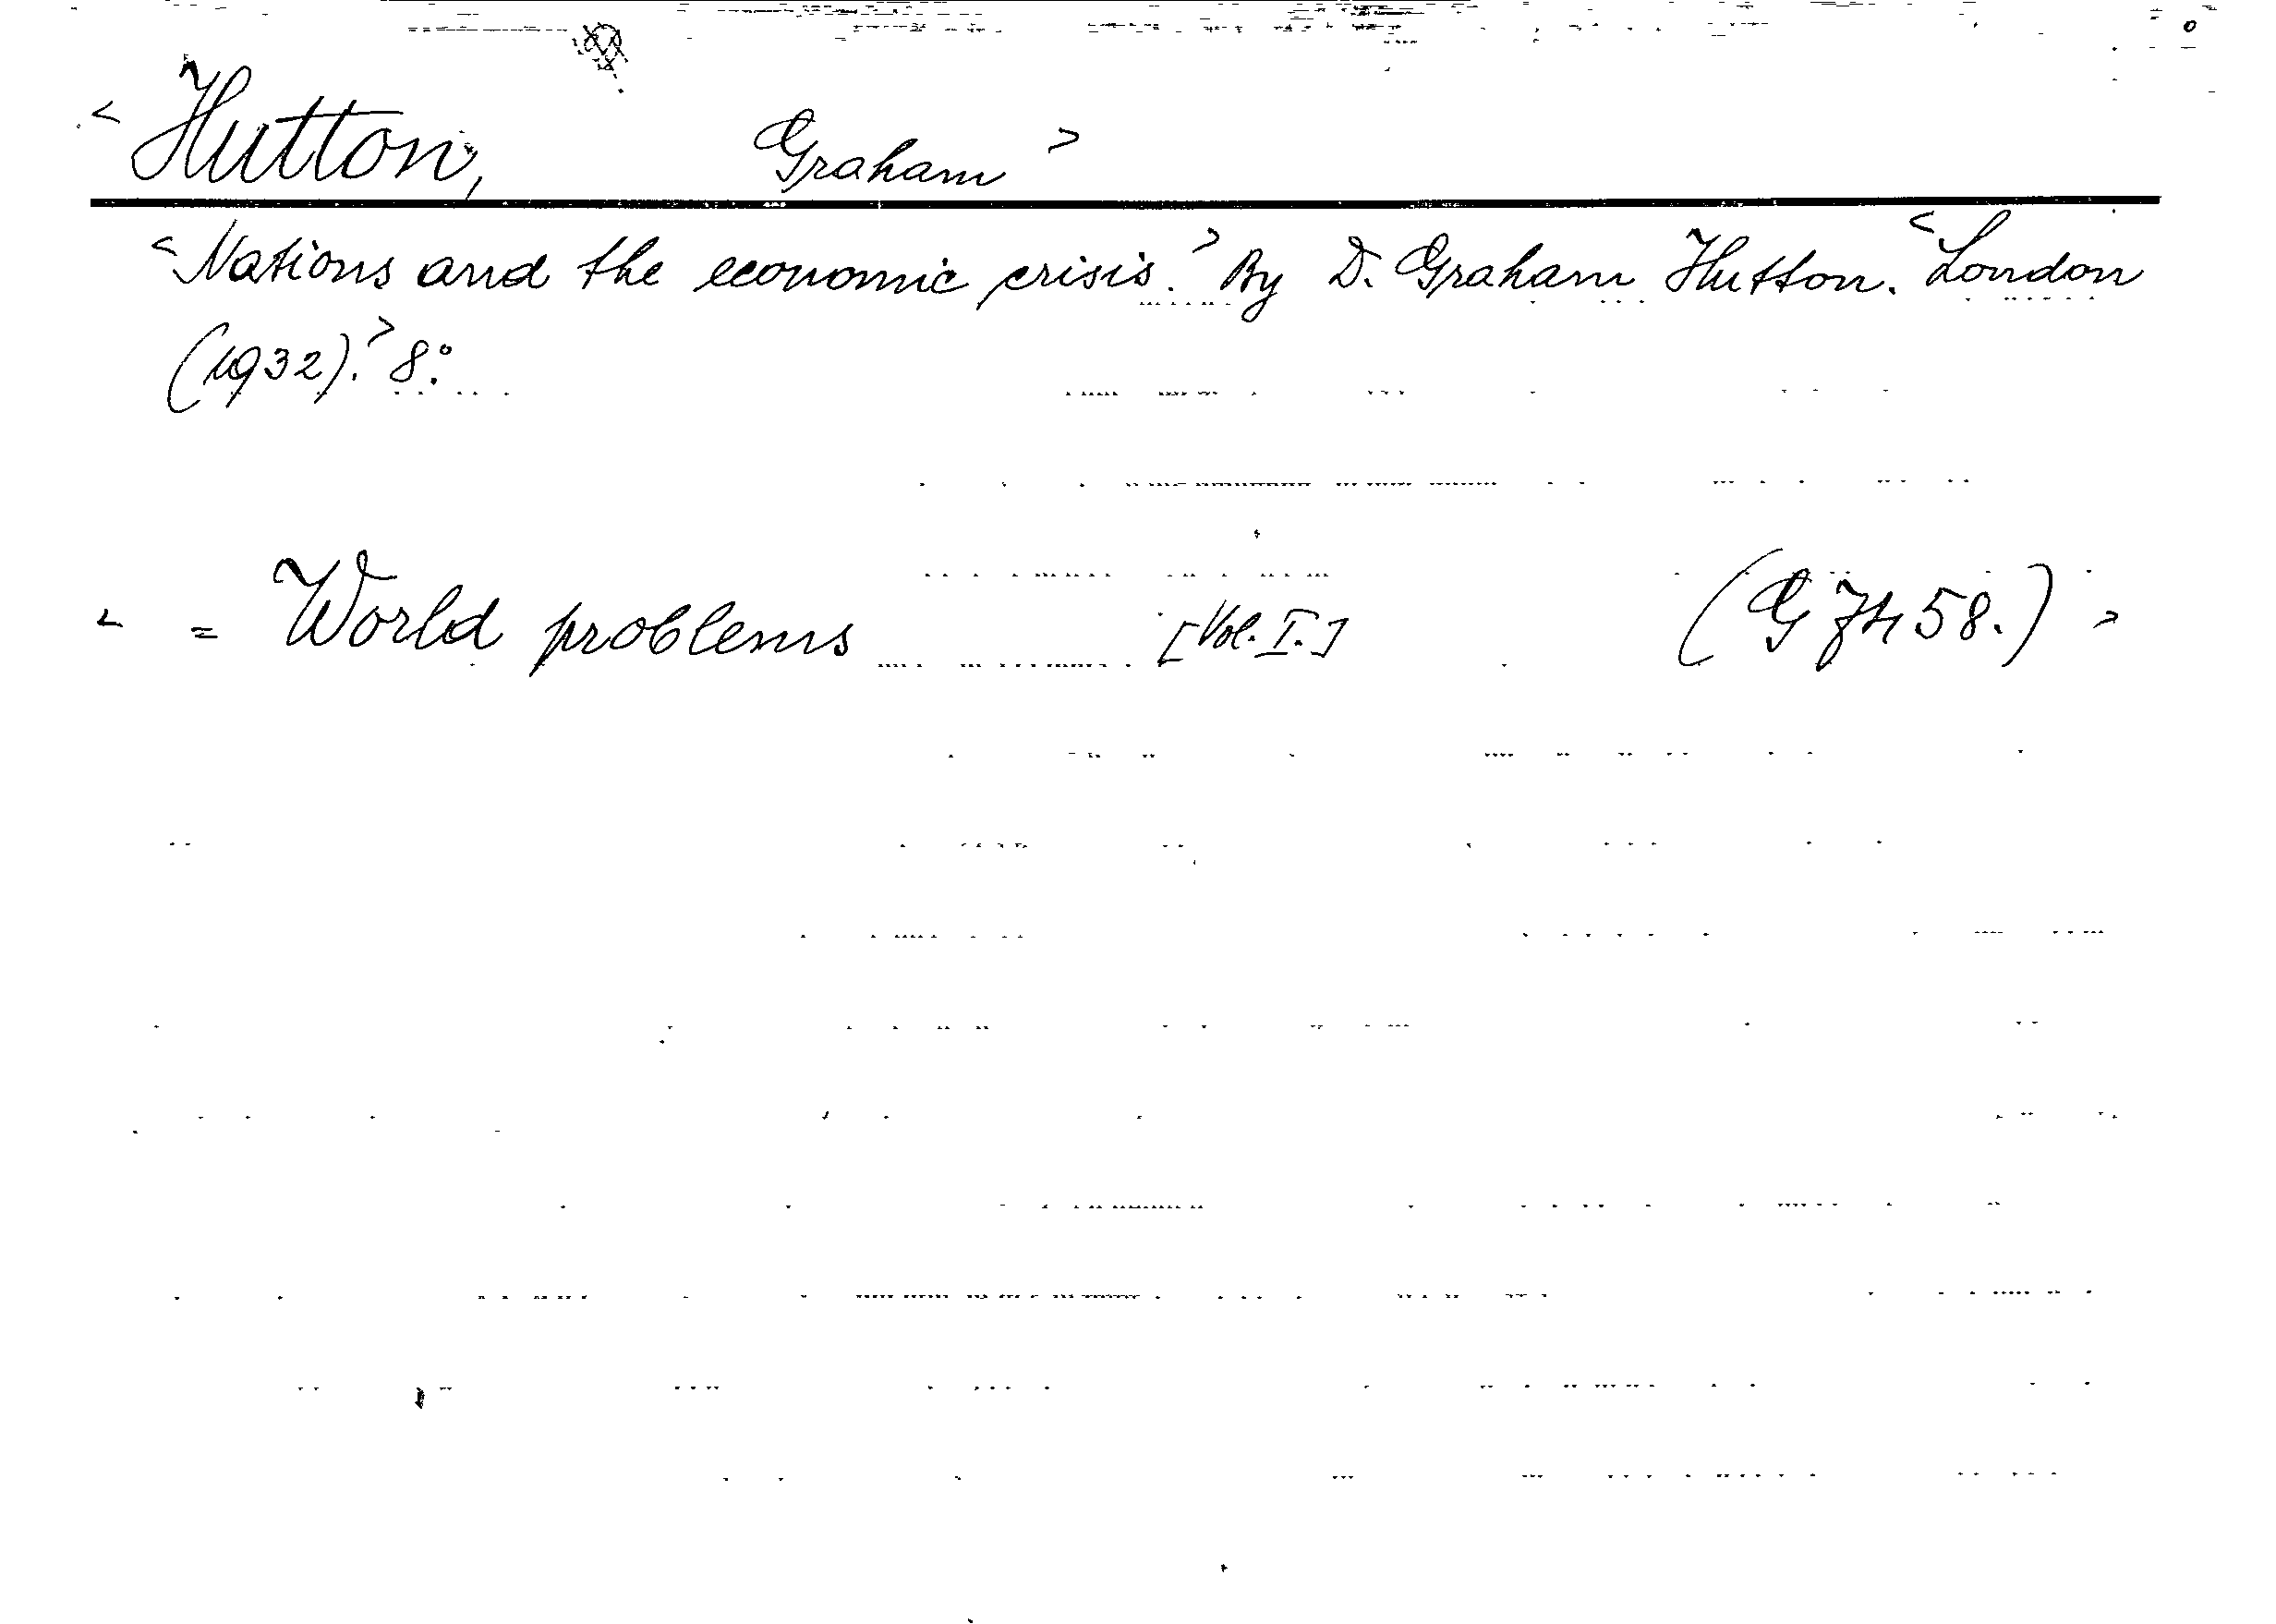 < Hutton, Graham >
< Nations and the economic crisis. > By D. Graham Hutton. < London
(1932). > 8:o
< = World problems [Vol. I.] (G 7458.) >